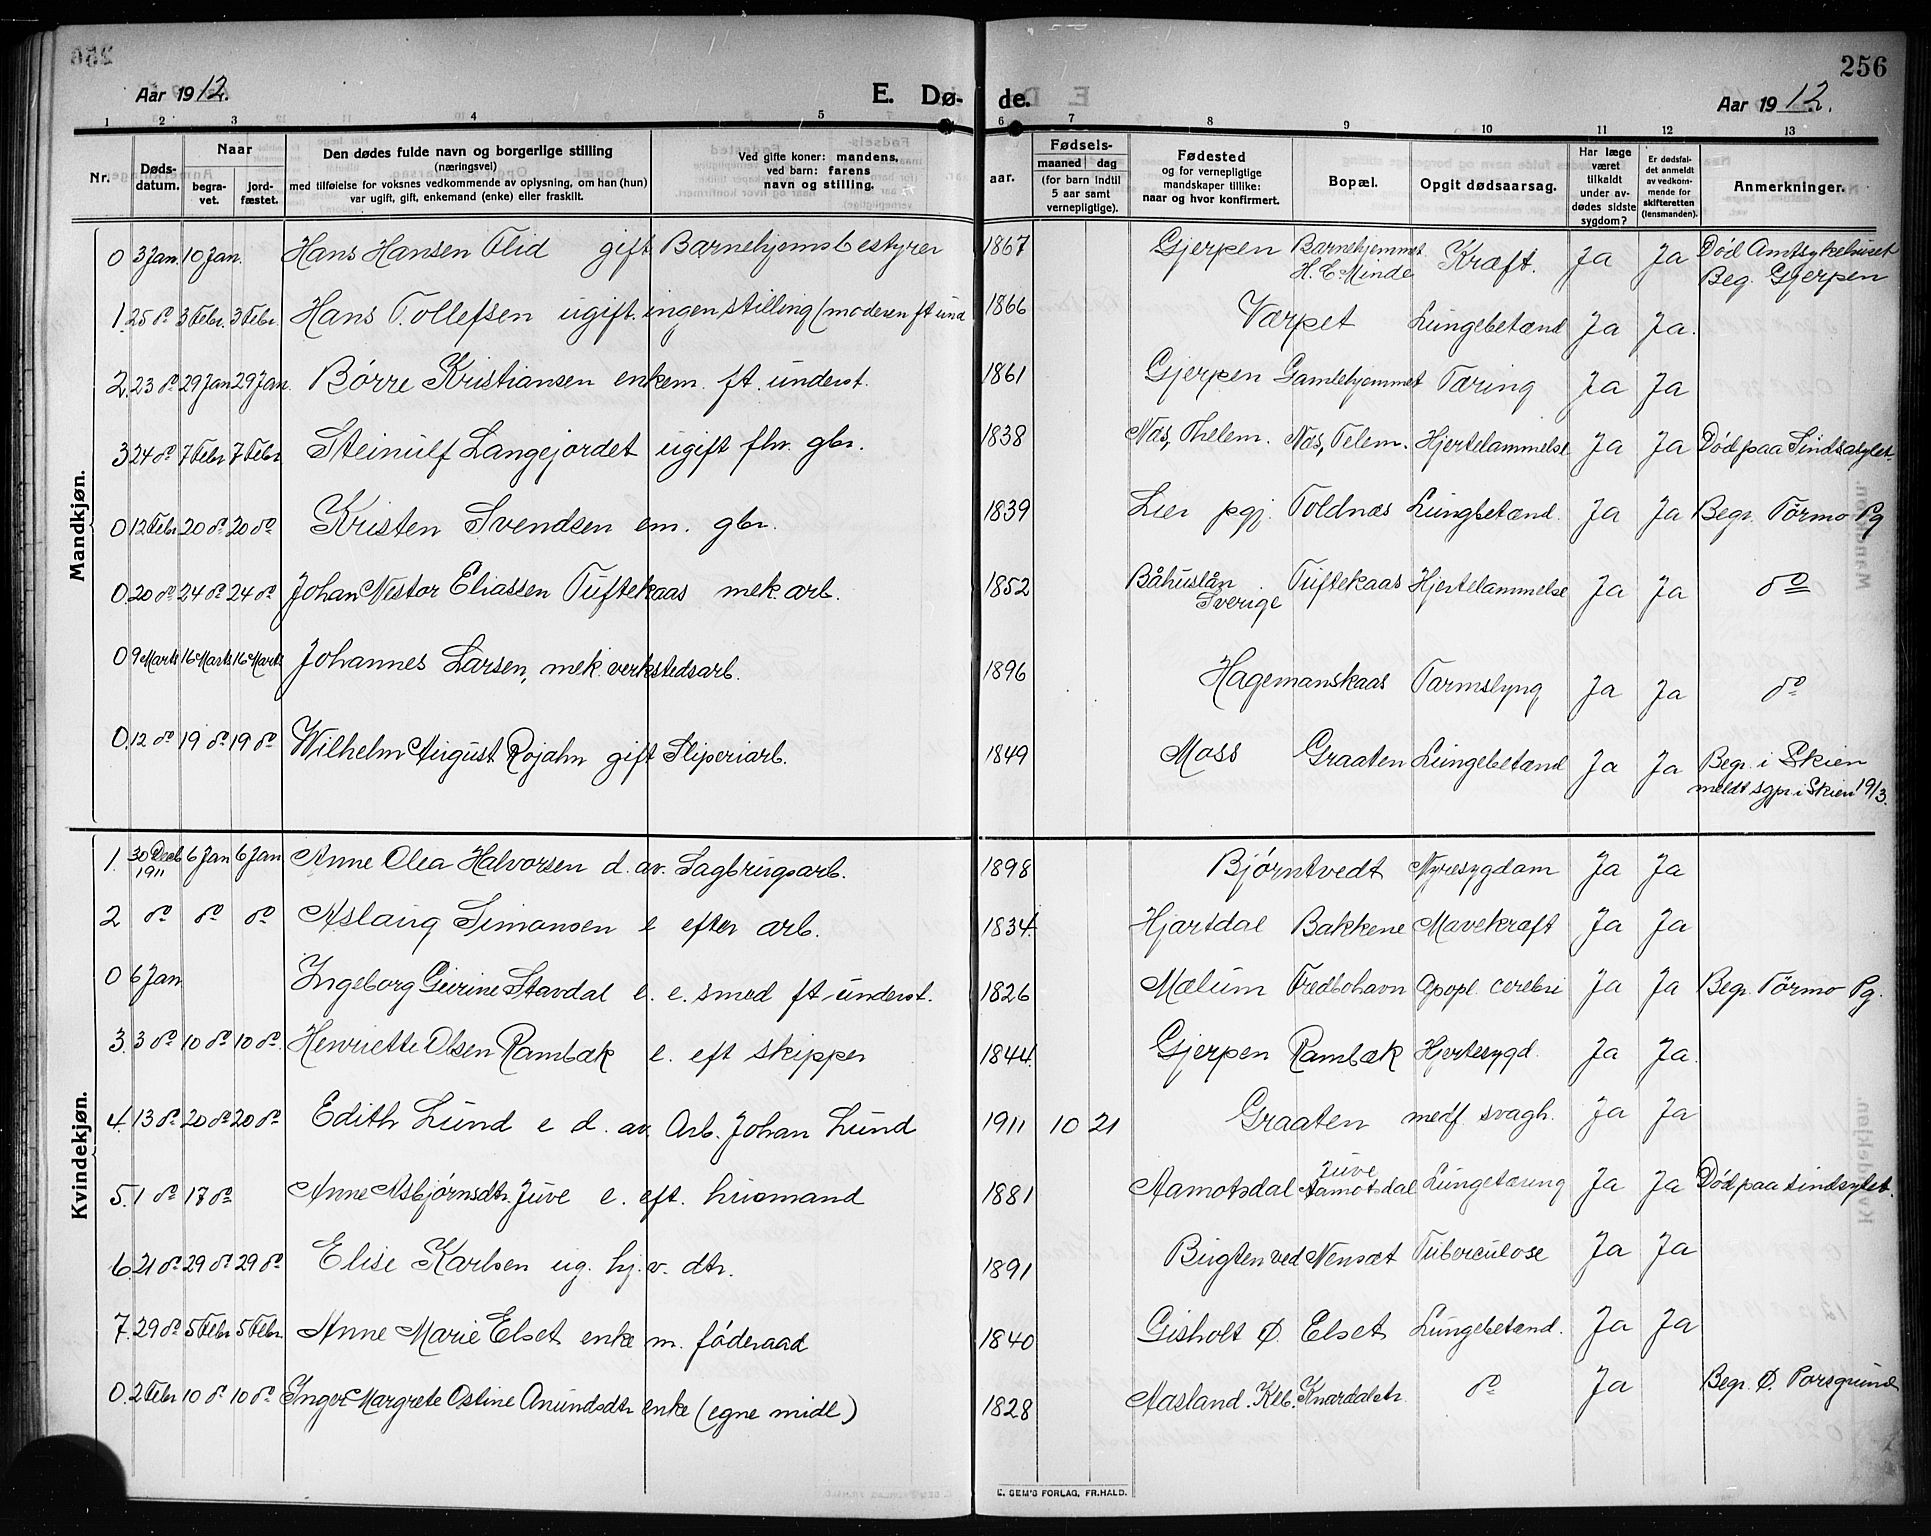 256
Aar 1912.
E. Dø- de.
Aar 1912.
1 2 3 4 5 6 7 8 9 10 11 12 13
Nr.
Døds-
datum.
Naar
begra-
vet.
jord-
fæstet.
Den dødes fulde navn og borgerlige stilling
(næringsvei)
med tilføielse for voksnes vedkommende av oplysning, om han (hun)
var ugift, gift, enkemand (enke) eller fraskilt.
Ved gifte koner: mandens,
ved barn: farens
navn og stilling.
aar.
Fødsels-
maaned dag
(for barn indtil
5 aar samt
vernepligtige).
Fødested
og for vernepligtige
mandskaper tillike:
naar og hvor konfirmert.
Bopæl.
Opgit dødsaarsag.
Har læge
været
tilkaldt
under av-
dødes sidste
sygdom?
Er dødsfal-
det anmeldt
av vedkom-
mende for
skifteretten
(lensmanden).
Anmerkninger.
Mandkjøn.
0 3 Jan. 10 Jan. Hans Hansen Flid gift Barnehjemsbestyrer 1867 Gjerpen Barnehjemmet H. E. Minde Kræft. Ja Ja Død Amtsykehuset
Beg. Gjerpen
1. 25 do 3 Febr. 3 Febr. Hans Tollefsen ugift. ingen stilling (moderen ft und 1866 Værpet Lungebetænd Ja Ja.
2. 23 do 29 Jan 29 Jan. Børre Kristiansen enkem. ft. underst. 1861 Gjerpen Gamlehjemmet Tæring Ja Ja
3 24 do 7 Febr 7 Febr. Steinulf Langejordet ugift fhv. gbr. 1838 Næs, Thelem. Næs, Telem. Hjertelammelse Ja Ja Død paa Sindsasylet.
0 12 Febr 20 do 20 do Kristen Svendsen em. gbr. 1839 Lier pgj. Toldnæs Lungbetænd. Ja Ja Begr. Tørmo Pg
0. 20 do 24 do 24 do Johan Nestor Eliassen Tuftekaas mek. arb. 1852 Båhuslån Sverige Tuftekaas Hjertelammelse Ja Ja do
0 9 Marts 16 Marts 16 Marts Johannes Larsen, mek. verkstedsarb. 1896 Hagemanskaas Tarmslyng Ja Ja do
0. 12 do 19 do 19 do Wilhelm August Rojahn gift Sliperiarb. 1849 Moss Graaten Lungebetænd Ja Ja Begr. i Skien
meldt sgpr i Skien 19/3.
Kvindekjøn.
1. 30 Decb 1911 6 Jan 6 Jan. Anne Olea Halvorsen d. av. Sagbrugsarb. 1898 Bjørntvedt Nyresygdam Ja Ja
2 do do do Aslaug Simonsen e efter arb. 1834. Hjartdal Bakkene Mavekræft Ja Ja
0 6 Jan Ingeborg Gurine Stavdal e. e. smed ft underst. 1826 Mælum Fredbohavn Apopl. cerebri Ja Ja Begr. Tørmo Pg.
3. 3 do 10 do 10 do. Henriette Olsen Rambæk e. eft skipper 1844. Gjerpen Rambæk Hjertesygd. Ja Ja.
4. 13 do 20 do 20 do Edith Lund e d. av. Arb. Johan Lund 1911 10 21 Graaten medf svagh. Ja Ja
5. 1 do 17 do Anne Asbjørnsdtr. Juve e. eft. husmand 1881 Aamotsdal Juve Aamotsdal Lungetæring Ja Ja Død paa sindsylet.
6. 21 do 29 do 29 do Elise Karlsen ug. hj. v. dtr. 1891 Bugten ved Nensæt Tuberculose Ja Ja
7. 29 do 5 Febr 5 Febr. Anne Marie Elset enke m. føderaad 1840 Gisholt Ø. Elset Lungebetænd. Ja Ja
0. 2 Febr 10 do 10 do Inger Margrete Ostine Anundsdtr enke (egne midl) 1828 Aasland. Keb. Knarddalstr. do Ja Begr. Ø. Porsgrund
E. SEM'S FORLAG, FR.HALD.